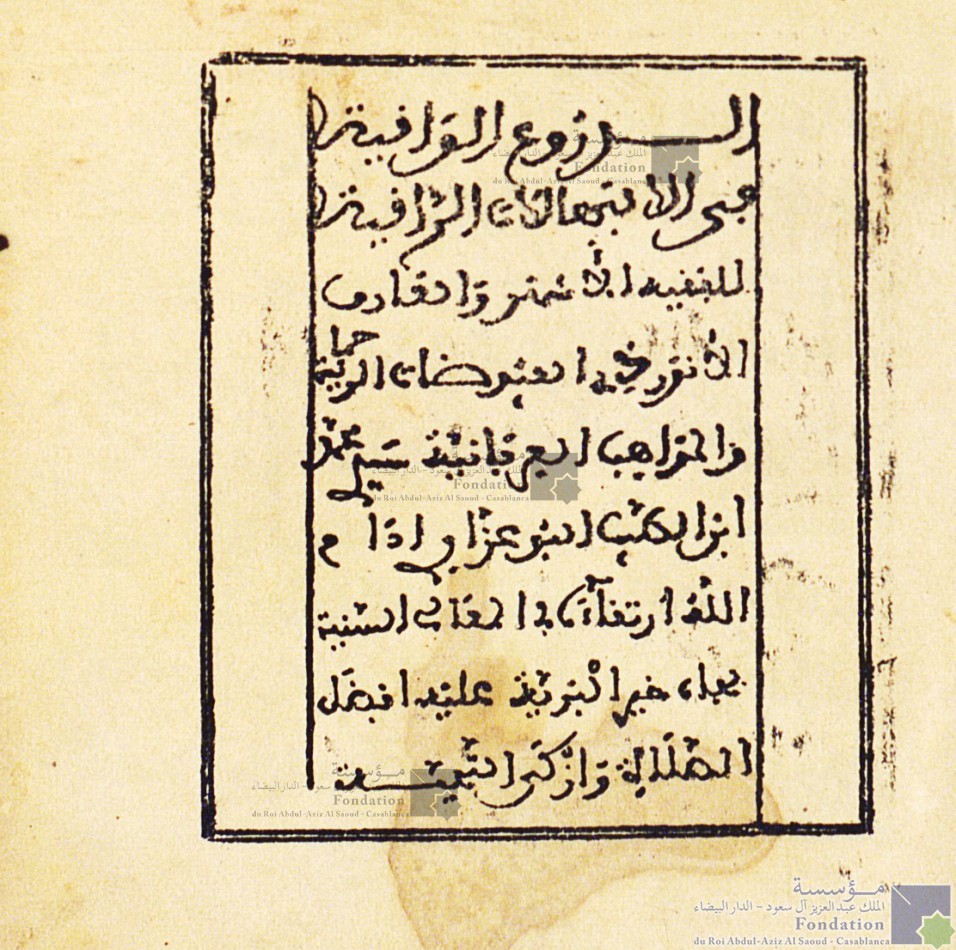 الدروع الوافية
عن الانبعاثات الترافية
للفقيه الأسمى والعارف
الأنور في الفيوضات الرحمانية
والمواهب العرفانية سيدي محمد
ابن الطيب البوعزاوي ادام
الله ارتقاءه في المقامات السنية
بجاه خير البرية عليه افضل
الصلاة وأزكى التحية
مؤسسة
الملك عبد العزيز آل سعود - الدار البيضاء
Fondation
du Roi Abdul-Aziz Al Saoud - Casablanca